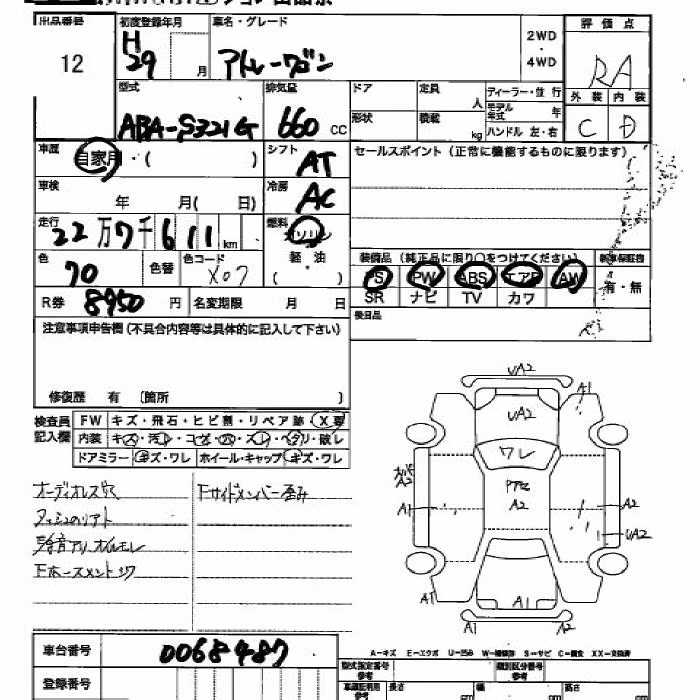 出品番号
12
初度登録年月
H
29 月
車名・グレード
アトレーワゴン
2WD
・
4WD
評価点
RA
外装 内装
C D
型式
ABA-S321G
排気量
660 CC
ドア
定員
人
形状
積載
kg
ディーラー・並行
モデル年式 年
ハンドル 左・右
車歴
自家用・( )
シフト
AT
セールスポイント (正常に機能するものに限ります)
車検
年 月( 日)
冷房
AC
走行
22万7千611km
燃料
ガソリン
軽・油
( )
色
70
色替
色コード
X07
装備品 (純正品に限り○をつけてください)
PS PW ABS エアB AW
SR ナビ TV カワ
新車保証書
有・無
R券 8950 円
名変期限 月 日
後日品
注意事項申告欄 (不具合内容等は具体的に記入して下さい)
修復歴 有 〔箇所 〕
検査員
記入欄
FW キズ・飛石・ヒビ割・リペア跡・X要
内装 キズ・汚レ・コゲ・穴・スレ・ヘタリ・破レ
ドアミラー キズ・ワレ ホイール・キャップ キズ・ワレ
オーディオレス
Fサイドメンバー歪み
UA2
A1
UA2
ワレ
A2
A2
A1
A2
UA2
A1
A1
A1
A2
車台番号
0068487
登録番号
A-キズ E-エクボ U-凹み W-補修跡 S-サビ C-腐食 XX-交換済
型式指定番号
類別区分番号
参考
参考
長さ cm
幅 cm
高さ cm